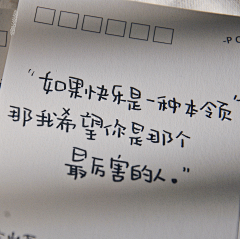 "如果快乐是一种本领
那我希望你是那个
最厉害的人。"